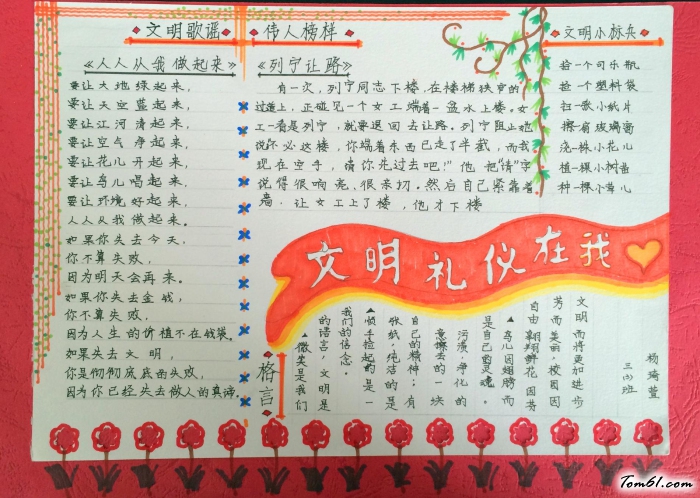 文明歌谣
《人人从我做起来》
要让大地绿起来，
要让天空蓝起来，
要让江河清起来，
要让空气净起来，
要让花儿开起来，
要让鸟儿唱起来，
要让环境好起来，
人人从我做起来。
如果你失去今天，
你不算失败，
因为明天会再来。
如果你失去金钱，
你不算失败，
因为人生的价值不在钱袋。
如果失去文明，
你是彻彻底底的失败，
因为你已经失去做人的真谛。
伟人榜样
《列宁让路》
有一次，列宁同志下楼，在楼梯狭窄的
过道上，正碰见一个女工端着一盆水上楼。女
工一看是列宁，就要退回去让路。列宁阻止她
说不必这楼，你端着东西已走了半截，而我
现在空手，请你先过去吧！”他把“请”字
说得很响亮，很亲切。然后自己紧靠着
墙，让女工上了楼，他才下楼
文明小标兵
捡一个可乐瓶
捡一个塑料袋
扫一歌小纸片
擦一扇玻璃窗
浇一株小花儿
植一棵小树苗
种一棵小草儿
文明礼仪在我
格言
▲微笑是我们
的语言，文明是
我们的信念。
▲倾千捡起的是一
张纸，纯洁的是
自己的精神；有
意擦去的一块
污渍，净化的
是自己的灵魂。
▲鸟儿因翅膀而
自由翱翔，鲜花因芬
芳而美丽，校园因
文明而将更加进步
三(3)班
杨瑞萱
Tom61.com